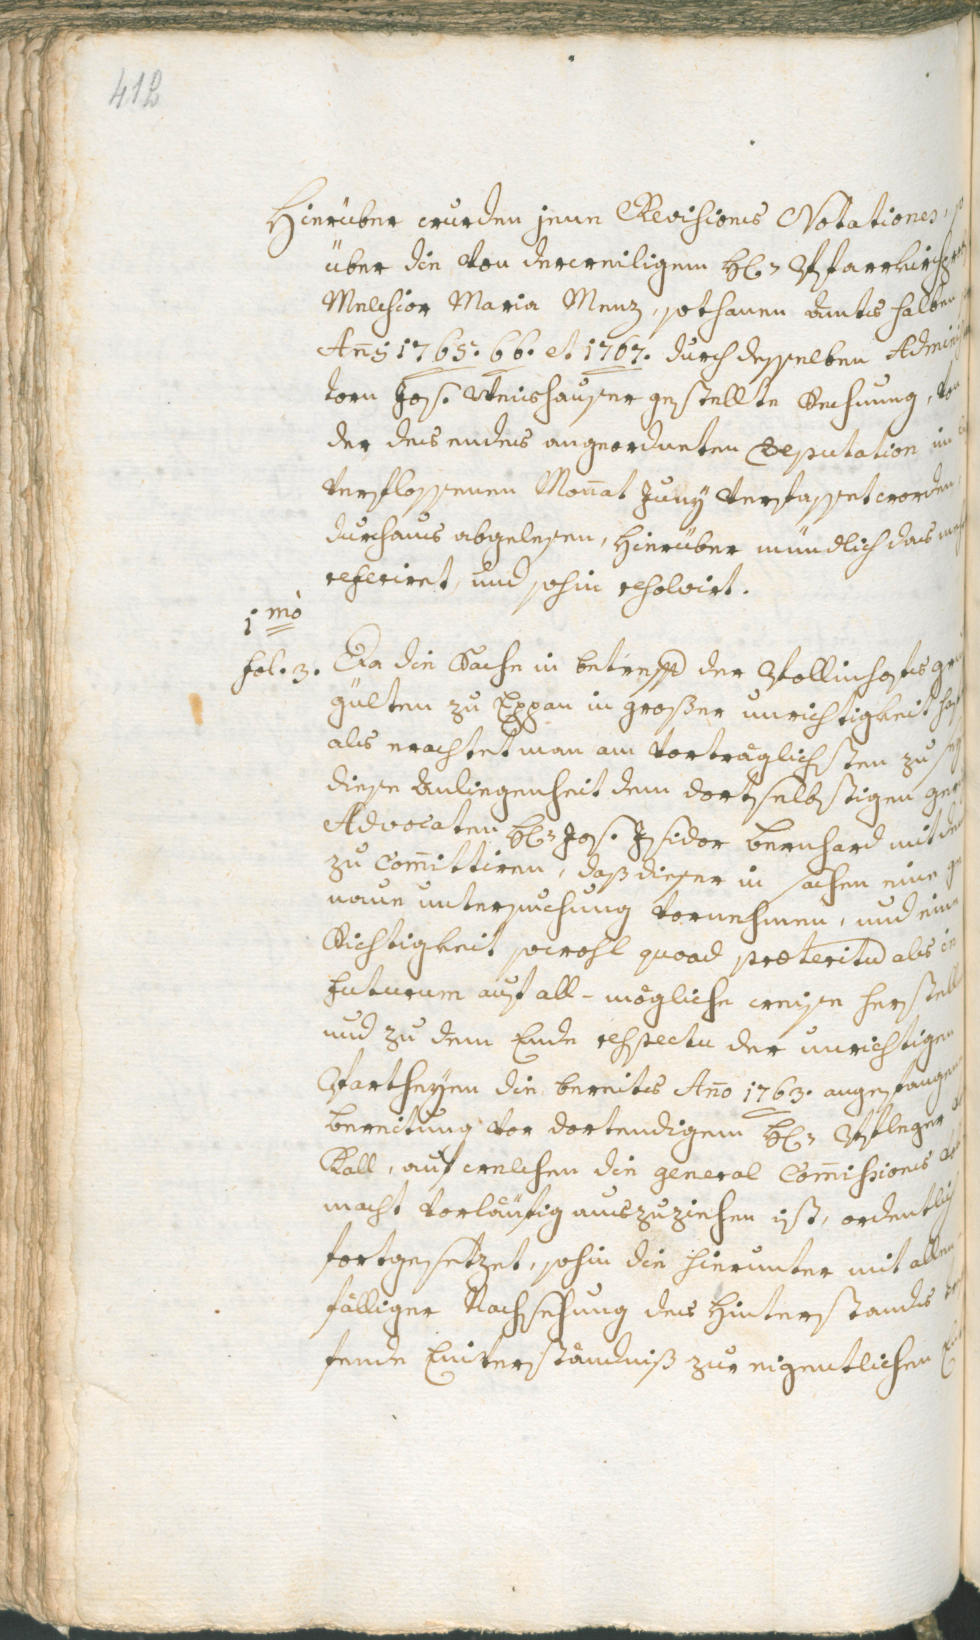 412
Hierüber wurden jene Revisions Notationes, so
über die von derweiligem H: Pfarrkirchpro
Melchior Maria Menz, sothanen Amts halben
Anis 1765. 66. et 1767. durch desselben Admini
torn Jos. Weishauser gestellte Rechnung, von
der des endes angeordneten Deputation im
verflossenen Monat Juny verfasset worden,
durchaus abgelesen, hierüber mündlich das
referiret, und sohin resolvirt.
1mo
fol. 3. Da die Sache in betreff der Stollinhofs
gülten zu Eppan in großer unrichtigkeit haf
als erachtet man am vorträglichsten zu sey
diese Anliegenheit dem dortselbstigen ger
Advocaten H: Jos. Isidor Bernhard mit dem
zu Committiren, daß dieser in sachen eine ge
naue untersuchung vornehmen, und eine
Richtigkeit sowohl quoad præteritum als in
futurum auf all-mögliche weise herstelle
und zu dem Ende respectu der unrichtigen
Partheyen die bereits Ano 1763. angefangene
bereitung vor dortendigem H: Pfleger
Kall, auf welchen die general Commissions
macht vorläufig auszuziehen ist, ordentlich
fortgesetzet, sohin die hierunter mit allen-
fälliger Nachsehung des Hinterstands
fende Einverständniß zur eigentlichen